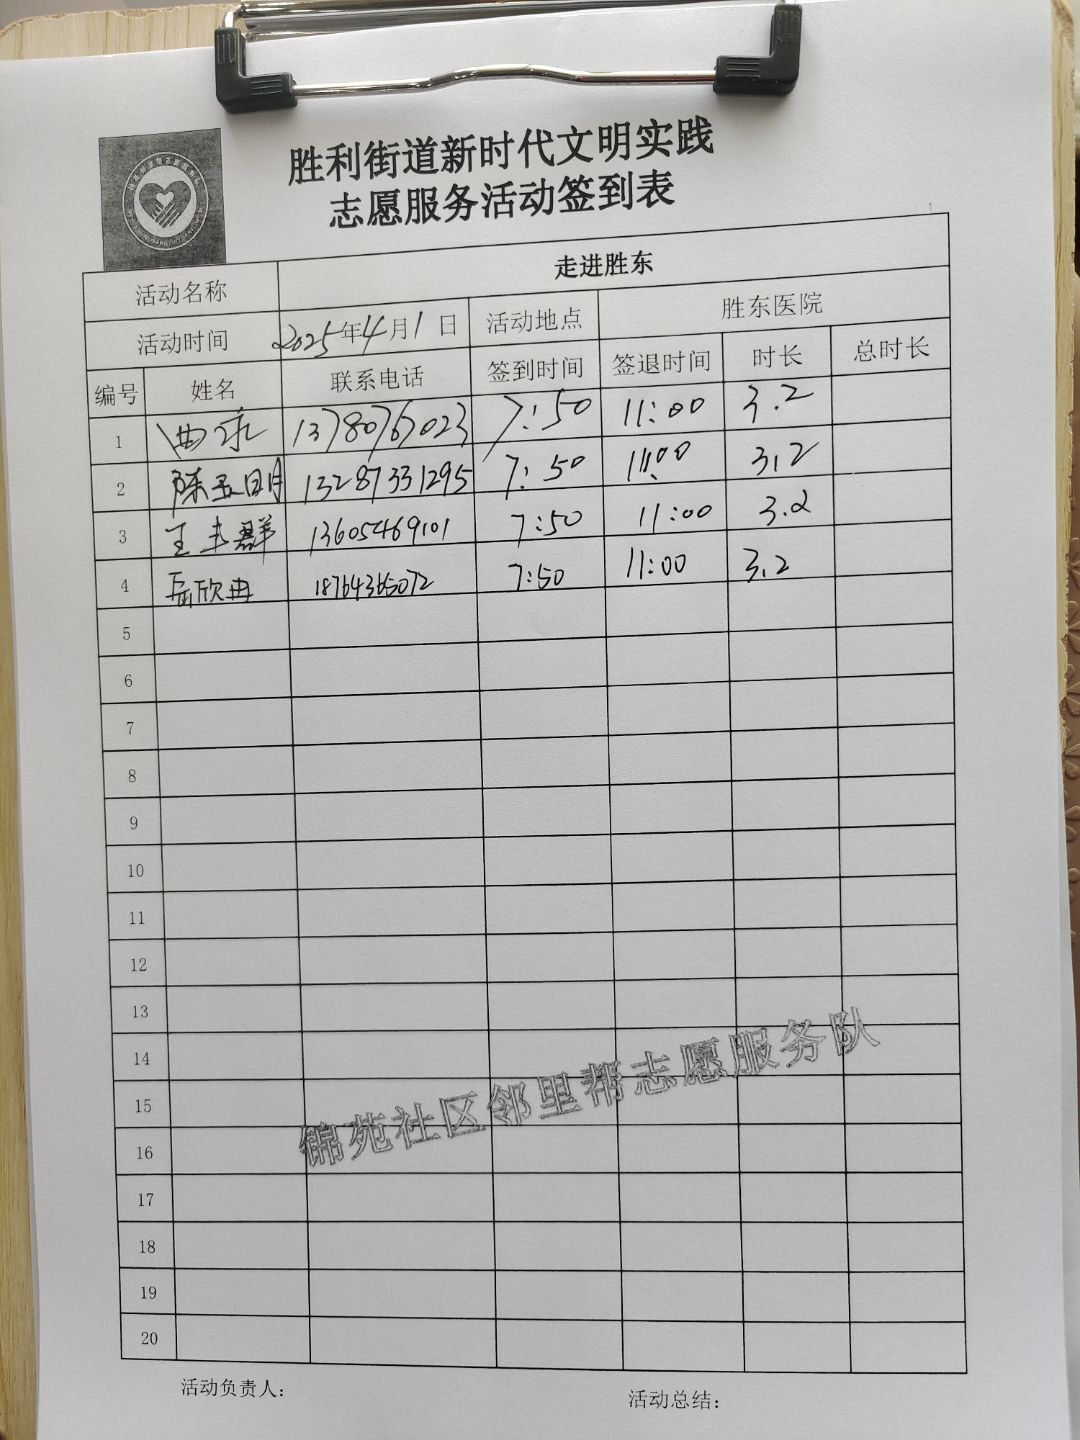 胜利街道新时代文明实践
志愿服务活动签到表
活动名称 走进胜东
活动时间 2025年4月1日 活动地点 胜东医院
编号 姓名 联系电话 签到时间 签退时间 时长 总时长
1 13780767023 7:50 11:00 3.2
2 陈玉明 13287331295 7:50 11:00 3.2
3 王丰群 13605469101 7:50 11:00 3.2
4 岳欣冉 18764365072 7:50 11:00 3.2
5
6
7
8
9
10
11
12
13
14
15
16
17
18
19
20
锦苑社区邻里帮志愿服务队
活动负责人: 活动总结: